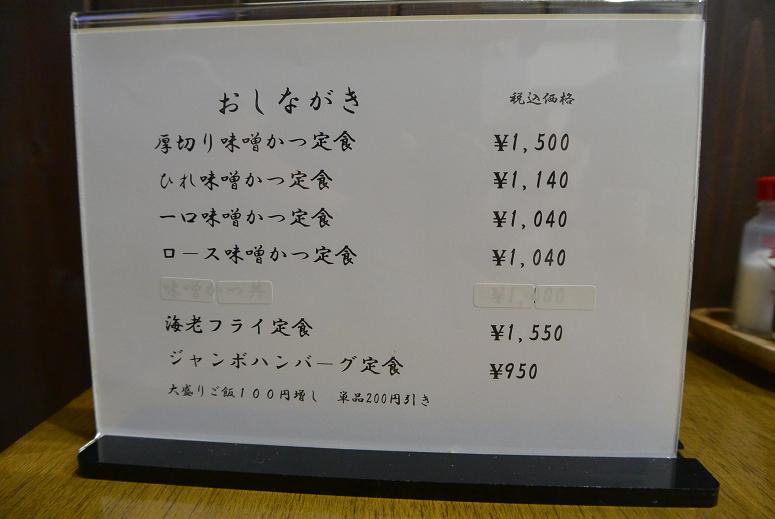 おしながき 税込価格
厚切り味噌かつ定食 ¥1,500
ひれ味噌かつ定食 ¥1,140
一口味噌かつ定食 ¥1,040
ロース味噌かつ定食 ¥1,040
味噌かつ丼
海老フライ定食 ¥1,550
ジャンボハンバーグ定食 ¥950
大盛りご飯100円増し 単品200円引き